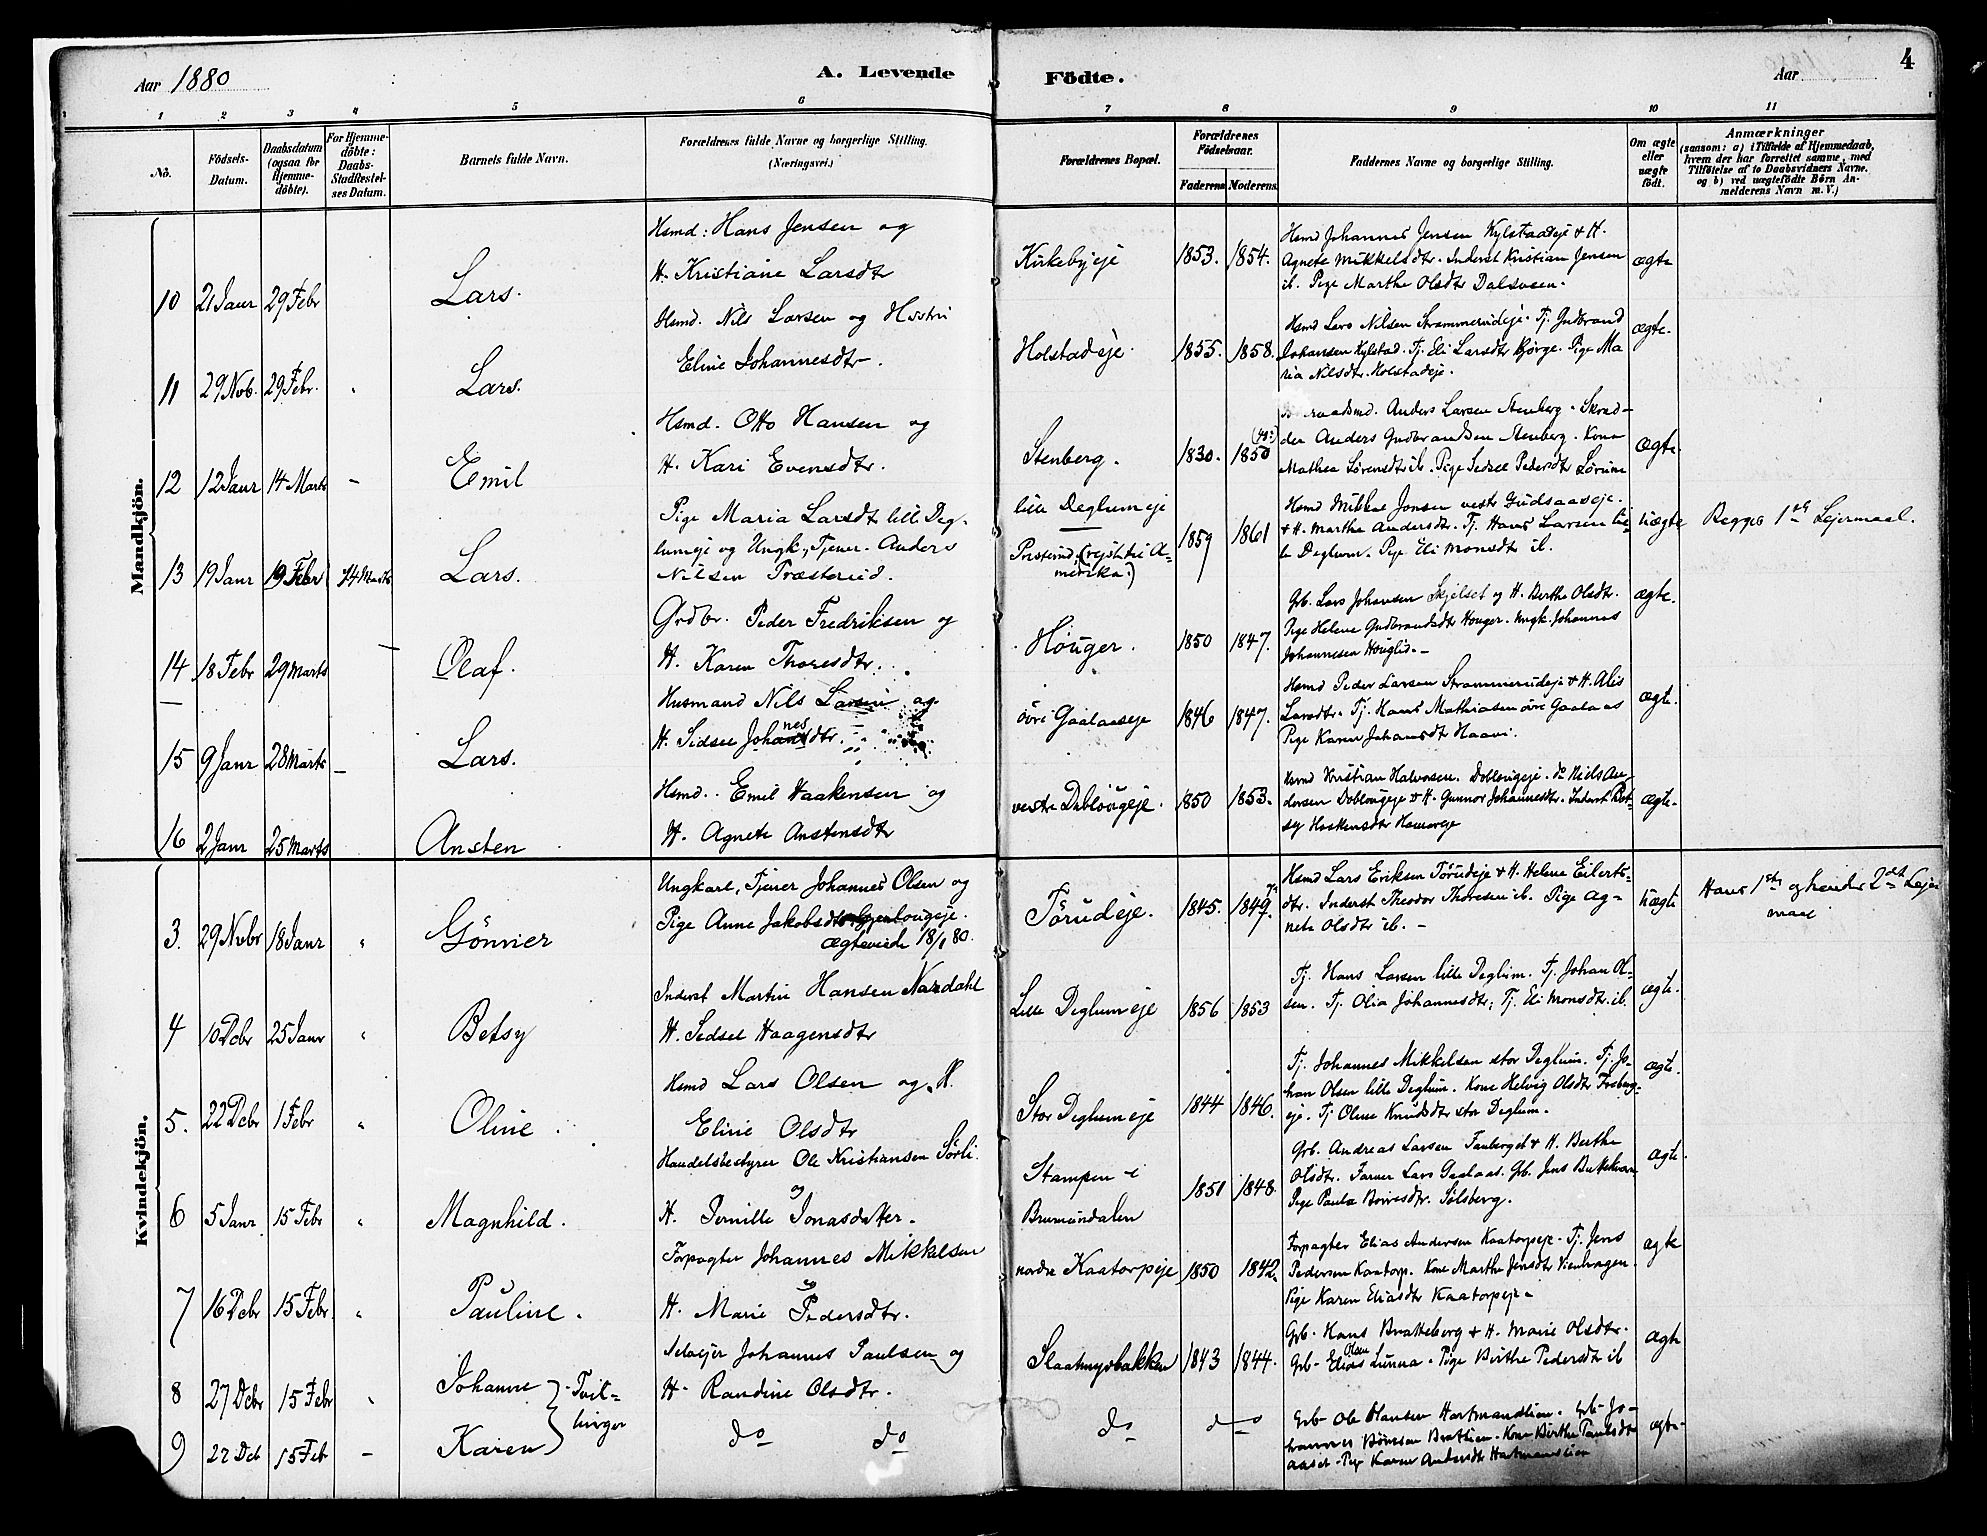 Aar 1880
A. Levende Födte.
Aar
4
1 2 3 4 5 6 7 8 9 10 11
No.
Födsels-Datum.
Daabsdatum (ogsaa for Hjemmedöbte).
For Hjemmedöbte: Daabs-Stadfæstelses Datum.
Barnets fulde Navn.
Forældrenes fulde Navne og borgerlige Stilling. (Næringsvei.)
Forældrenes Bopæl.
Forældrenes Födselsaar.
Faderens Moderens
Faddernes Navne og borgerlige Stilling.
Om ægte eller uægte födt.
Anmærkninger
(saasom: a) i Tilfælde af Hjemmedaab, hvem der har forrettet samme, med Tilföielse af to Daabsvidners Navne. og b) ved uægtefödte Börn Anmelderens Navn m. V.)
Mandkjön.
10 21 Janr 29 Febr Lars.
Hsmd: Hans Jensen og
H. Kristiane Larsdtr
Kirkebyeje 1853. 1854.
Hsmd Johannes Jensen Kylstadeje & H.
Agnete Mikkelsdtr. Inderst Kristian Jensen
ib. Pige Marthe Olsdtr Dalsveen.
ægte
11 29 Nvb. 29 Febr. " Lars.
Hsmd. Nils Larsen og Hustru
Eline Johannesdtr.
Holstadeje 1855. 1858.
Hsmd Lars Nilsen Strammerudeje. Tj. Gudbrand
Johansen Kylstad. Tj. Eli Larsdtr Bjørge. Pige Ma
ria Nilsdtr. Holstadeje.
ægte.
12 12 Janr 14 Marts - Emil
Hsmd. Otto Hansen og
H. Kari Evensdtr.
Stenberg. 1830. 1850
Anders Larsen Stenberg. Skræd-
der Anders Gudbrandsen Stenberg. Kone
Mathea Lørensdtr ib. Pige Sedsel Pedersdtr
ægte.
13 19 Janr 19 Febr 14 Marts Lars.
Pige Maria Larsdtr lill Deg-
lumeje og Ungk., Tjener. Anders
Nilsen Præsterud.
lille Deglumeje
Præsterud (rejst til A-
merika.)
1859 1861
Hsmd Mikkel Jonsen vestr Gudsaaseje.
& H. Marthe Andersdtr. Tj. Hans Larsen lil-
le Deglum. Pige Eli Monsdtr ib.
uægte Begges 1ste Lejermaal.
14 18 Febr 29 Marts - Olaf.
Grdbr. Peder Fredriksen og
H. Karen Thoresdtr.
Houger. 1850 1847.
Grb. Lars Johansen Skjelset og H. Berthe Olsdtr.
Pige Helene Gudbrandsdtr Houger. Ungk. Johannes
Johannesen Houglid.
ægte.
15 9 Janr 28 Marts - Lars.
Husmand Nils Larsen og
H. Sidsel Johannesdtr.
övri Gaalaaseje 1846 1847.
Hsmd Peder Larsen Strammerudeje & H. Alis
Larsdtr. Tj. Hans Mathiasen övri Gaalaas
Pige Karen Johansdtr Haavi.
ægte.
16 2 Janr 25 Marts Ansten
Hsmd. Emil Haakensen og
H. Agnete Anstensdtr
vestre Dobloûgeje. 1850 1853.
Hsmd Kristian Halvorsen. Doblougeje. do Niels An-
dersen Doblougeje & H. Gunnor Johannesdtr. Inderst Bet-
sy Haskensdtr
ægte.
Kvindekjön.
3. 29 Nvbr 18 Janr " Gönner
Ungkarl, Tjener Johannes Olsen og
Pige Anne Jakobsdtr
ægteviede 18/1 80.
Törudeje. 1845. 1849.
Hsmd Lars Eriksen Törudeje & H. Helene Eilerts-
dtr. Inderst Theodor Thoresen ib. Pige Ag-
nete Olsdtr ib.
uægte Hans 1ste og hendes 2det Lejer
maal
4 10 Dcbr 25 Janr " Betsy
Inderst Martin Hansen Nordahl
H. Sedsel Haagensdtr
Lille Deglumeje 1856 1853
Tj. Hans Larsen lille Deglum. Tj. Johan Ol-
sen. Tj. Olia Johannesdtr; Tj. Eli Monsdtr ib.
ægte.
5. 22 Dcbr 1 Febr " Oline.
Hsmd Lars Olsen og H.
Eline Olsdtr
Stor Deglumeje 1844 1846.
Tj. Johannes Mikkelsen stor Deglum. Tj. Jo-
han Olsen lille Deglum. Kone Helvig Olsdtr
eje. Tj Oline Knudsdtr stor Deglum.
ægte.
6 5 Janr 15 Febr " Magnhild.
Handelsbestyrer Ole Kristiansen Sörli
og
H. Pernille Jonasdatter.
Stampen i
Brumundalen
1851 1848.
Grb. Andreas Larsen Fauberget & H. Berthe
Olsdtr. Farver Lars Gaalaas. Grb. Jens Bekkevar
Pige Paula Borresdtr. Sölsberg.
ægte.
7 16 Dcbr 15 Febr " Pauline.
Forpagter Johannes Mikkelsen
og
H. Marie Pedersdtr.
nordre Kaatorpeje 1850 1842.
Forpagter Elias Andersen Kaatorpeje. Tj. Jens
Pedersen Kaatorp. Kone Marthe Jensdtr Vienhagen.
Pige Karen Eliasdtr Kaatorpeje.
ægte
8 27 Dcbr 15 Febr " Johanne
Tvil-
linger
Selvejer Johannes Paulsen og
H. Randine Olsdtr.
Slaatmyrbakken 1843 1844.
Grb. Hans Bratteberg & H. Marie Olsdtr.
Grb- Elias Olsen Lunna. Pige Berthe Pedersdtr ib
ægte
9 22 Dcb 15 Feb - Karen
do do do do
Grb- Ole Hansen Hartmandlien. Grb- Jo-
hannes Bönsen Bratlien. Kone Berthe Paulsdtr
aaset. Pige Karen Andersdtr Hartmandlien
ægte.